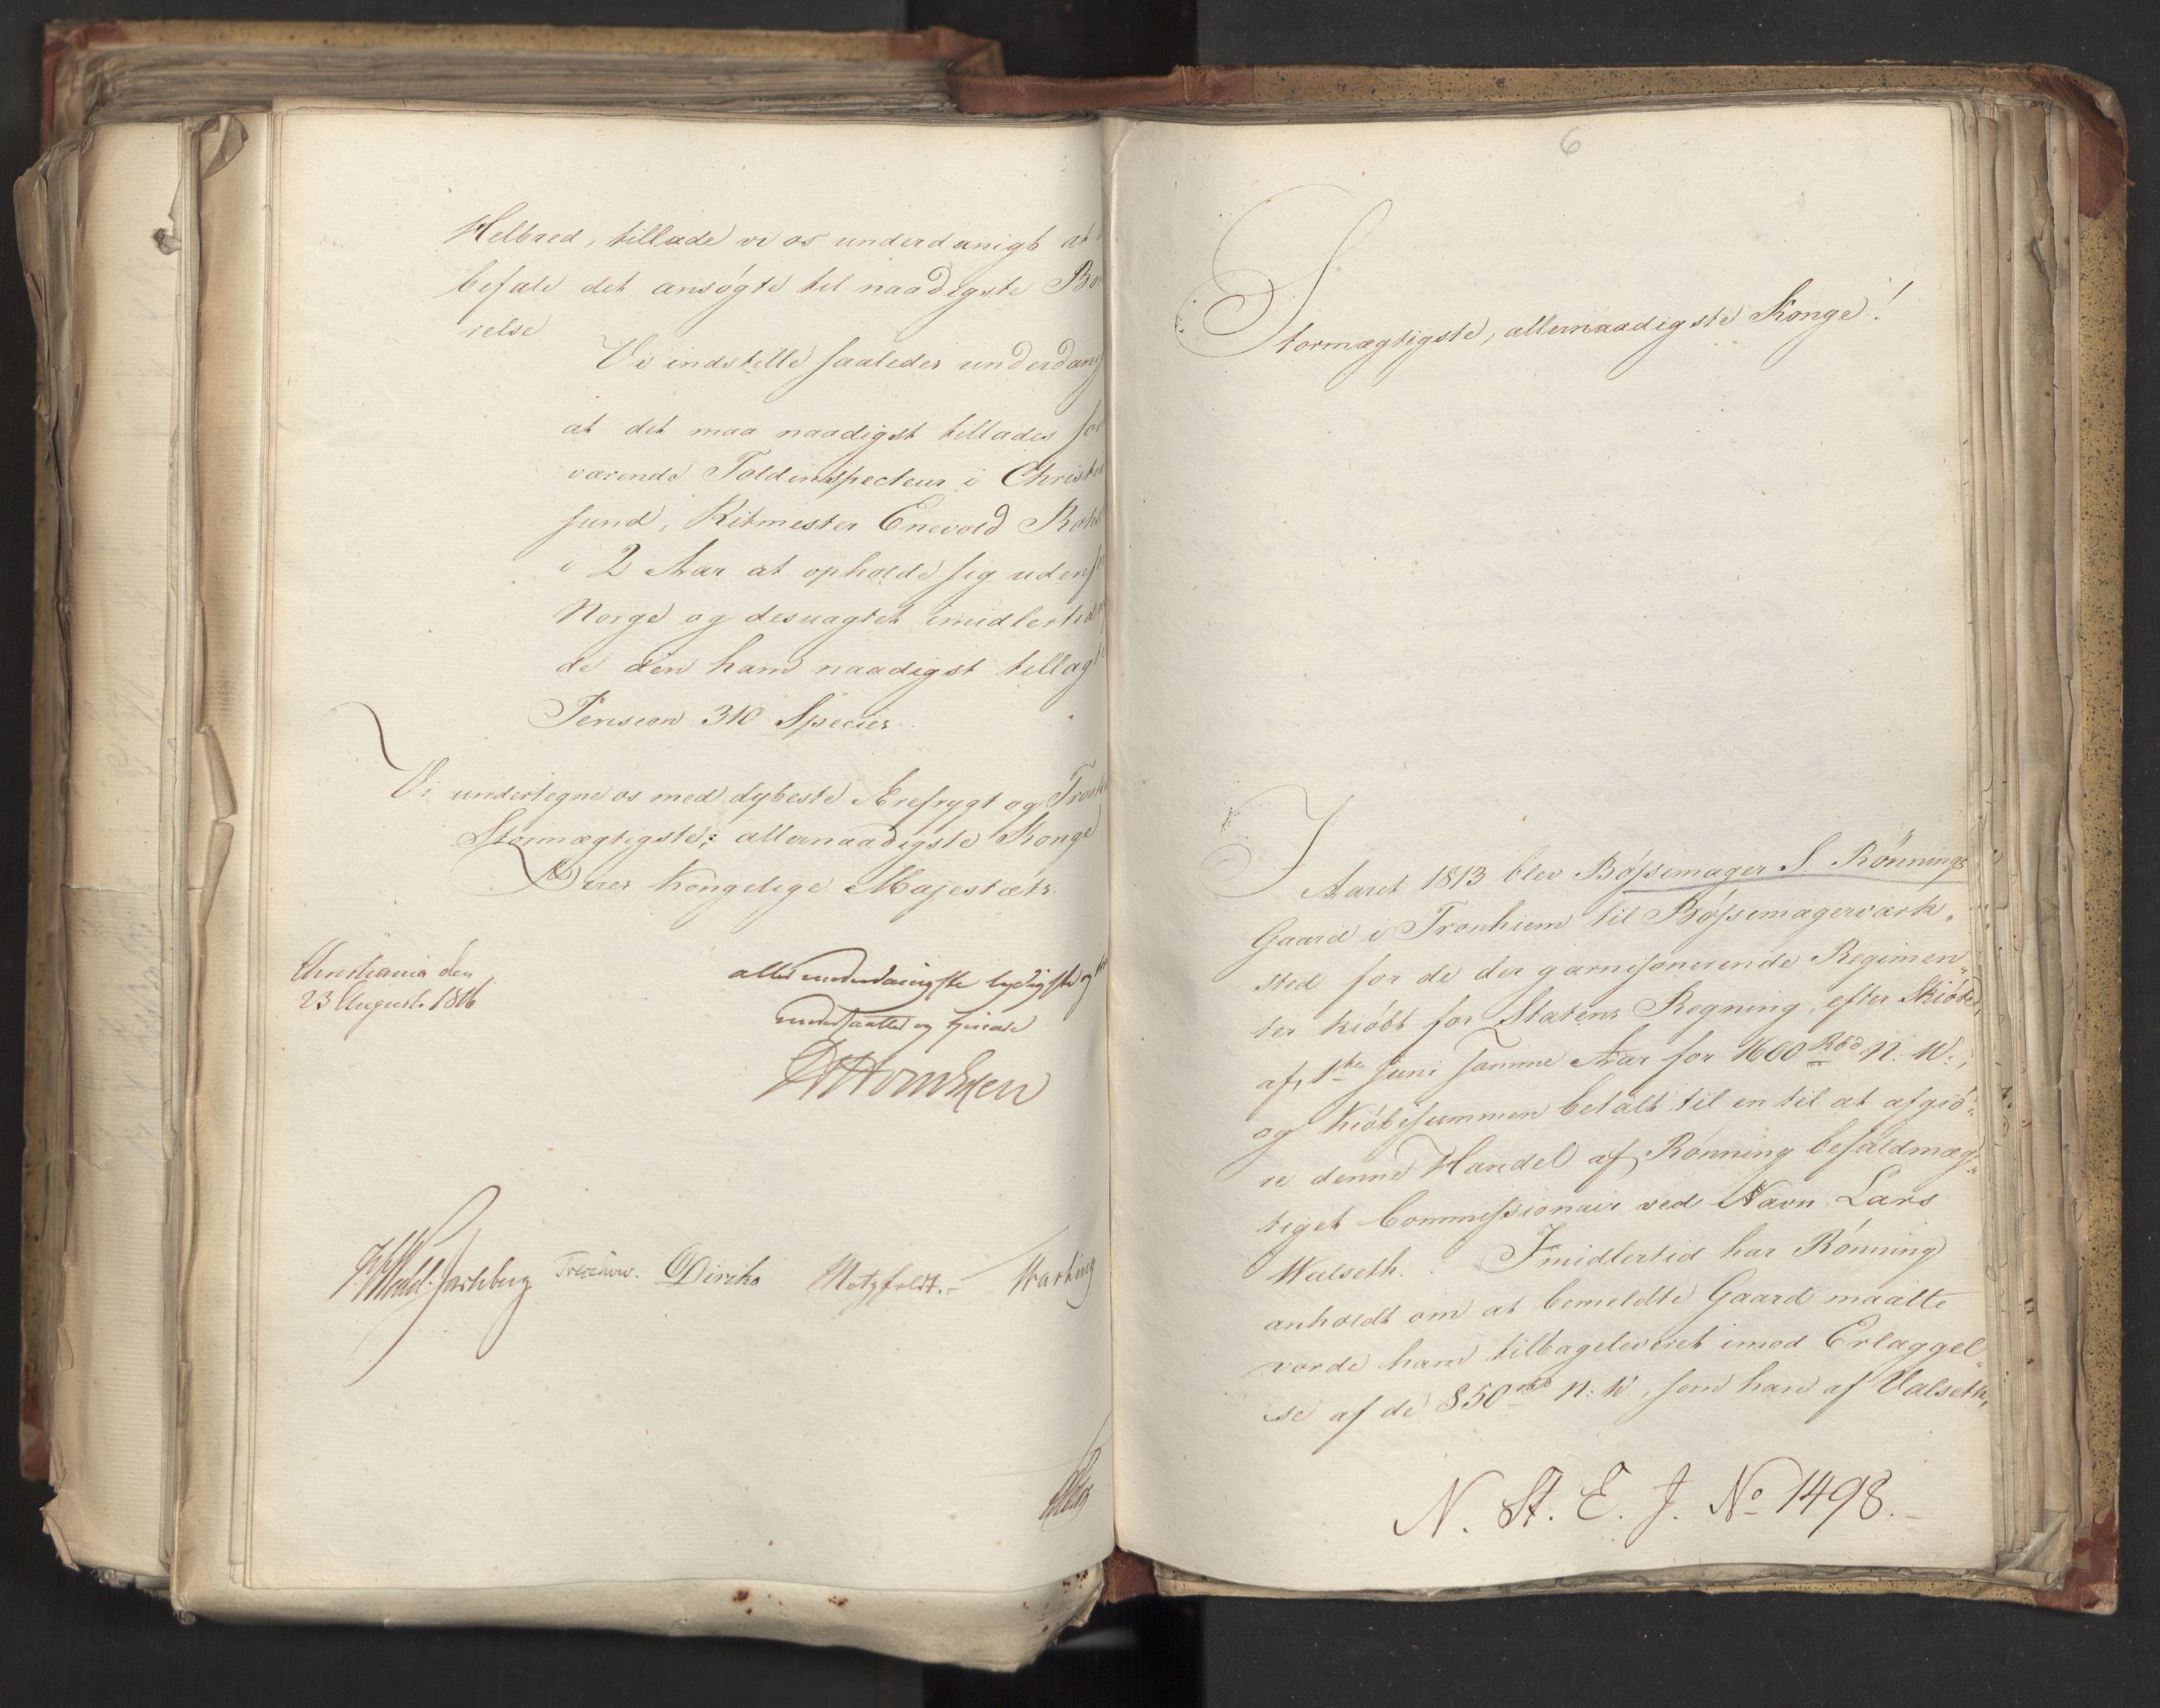 Helbred, tillade vi os underdanigt at
befale det ansøgte til naadigste Bø
relse
Vi indstille saaledes underdan
at det maa naadigst tillades for
værende Toldinspecteur i Christia
sund, Ritmester Enevold
i 2 Aar at opholde sig udenfor
Norge og desuagtet imidlertid
de den ham naadigst tillagte
Pension 310 Species.
Vi undertegne os med dybeste Ærefrygt og Trosk
Stormægtigste, allernaadigste Konge
Deres Kongelige Majestæts
Christiania den
23 August 1816
allerunderdanigste lydigste og
undersaatter og tjenere
Treschow. Diriks Motzfeldt.-
6
Stormægtigste, allernaadigste Konge!
I Aaret 1813 blev Bøssemager S. Rønnings
Gaard i Tronhiem til Bøssemagerværk„
sted for de der garnisonerende Regimen„
ter kiøbt for Statens Regning, efter Skiøde,
af 1te Juni samme Aar for 1600 Rbd. N. W.,
og Kiøbesummen betalt til en til at afgiø„
re denne Handel af Rønning befuldmæg„
tiget Commissionair ved Navn Lars
Walseth. Imidlertid har Rønning
anholdt om at bemeldte Gaard maatte
vorde ham tilbageleveret imod Erlæggel„
se af de 850 rbd N. W, som han af Valseth,
N. St. E. J. No 1498.-